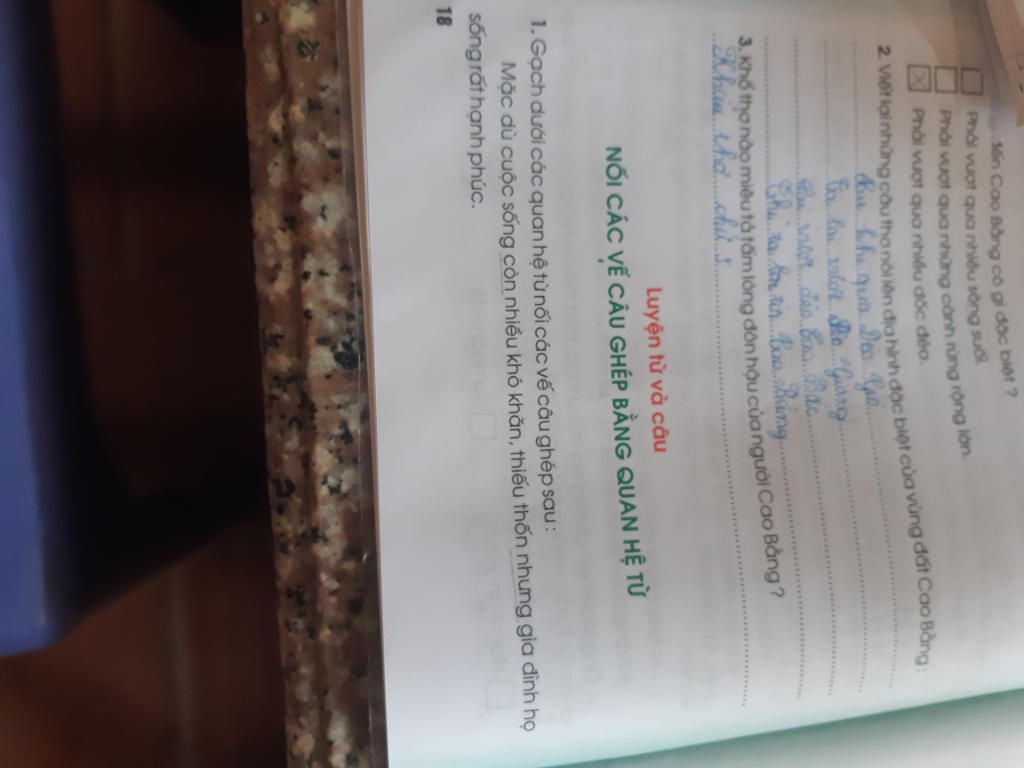 đến Cao Bằng có gì đặc biệt ?
Phải vượt qua nhiều sông suối.
Phải vượt qua những cánh rừng rộng lớn.
Phải vượt qua nhiều dốc đèo.
2. Viết lại những câu thơ nói lên địa hình đặc biệt của vùng đất Cao Bằng :
Sau khi qua Đèo Gió
Ta lại vượt Đèo Giang
Lại vượt đèo Cao Bắc
Thì ta tới Cao Bằng
3. Khổ thơ nào miêu tả tấm lòng đôn hậu của người Cao Bằng ?
Khổ thơ thứ
Luyện từ và câu
NỐI CÁC VẾ CÂU GHÉP BẰNG QUAN HỆ TỪ
1. Gạch dưới các quan hệ từ nối các vế câu ghép sau :
Mặc dù cuộc sống còn nhiều khó khăn, thiếu thốn nhưng gia đình họ
sống rất hạnh phúc.
18